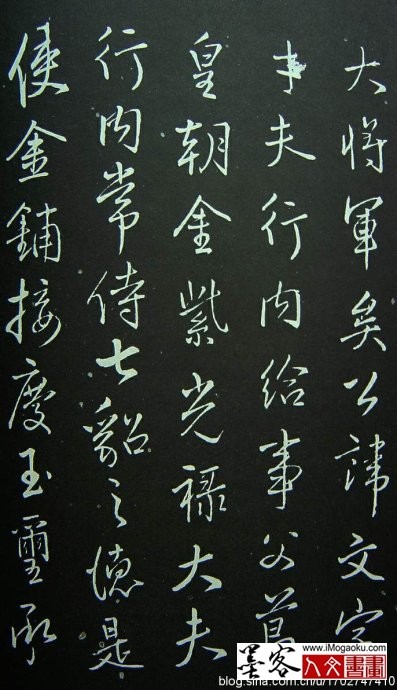 大將軍矣公諱文字
夫行内給事父
皇朝金紫光祿大夫
行内常侍七貂之德是
使金鋪接慶玉璽承
墨客
www.iMogaoku.com
人文書畫
blog.sina.com.cn/u/1702747410